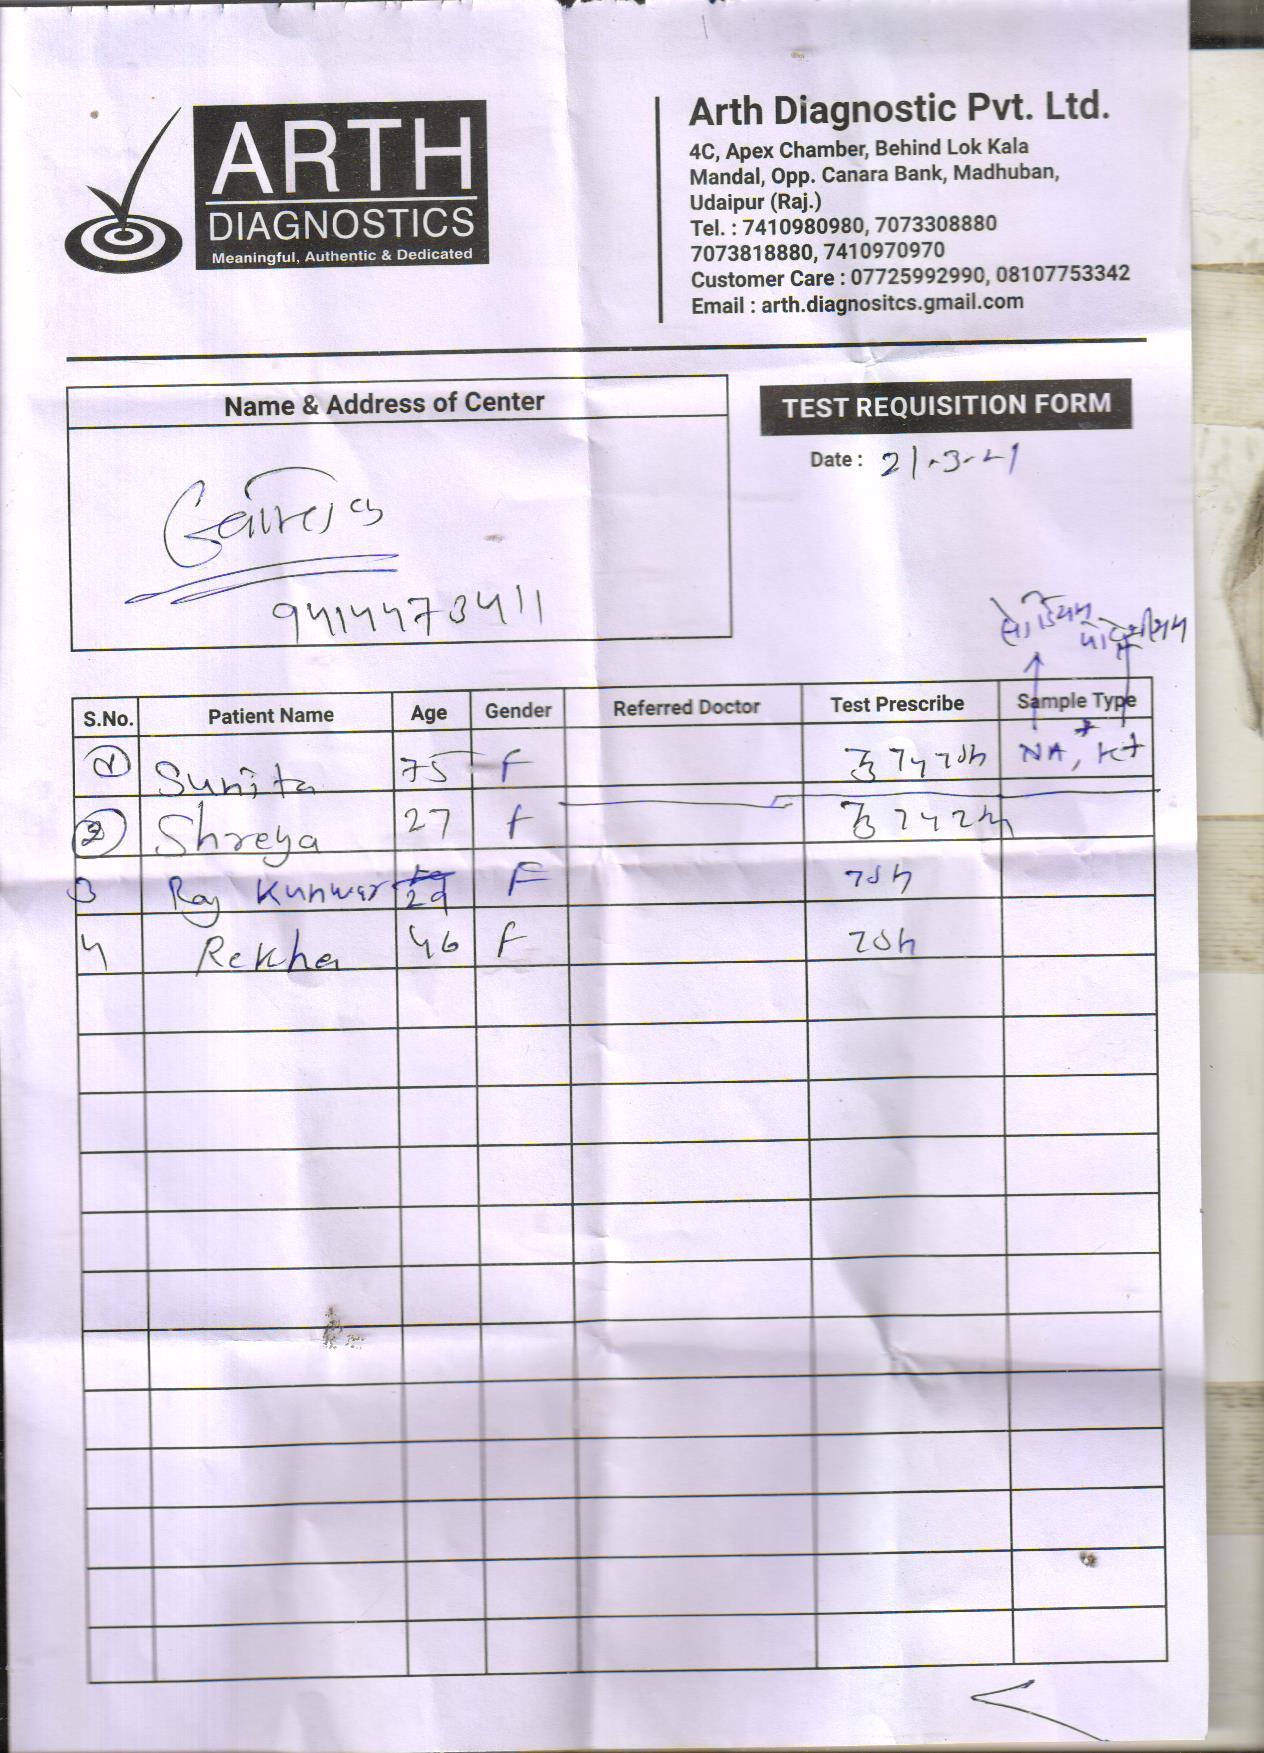 ARTH
DIAGNOSTICS
Meaningful, Authentic & Dedicated
Arth Diagnostic Pvt. Ltd.
4C, Apex Chamber, Behind Lok Kala
Mandal, Opp. Canara Bank, Madhuban,
Udaipur (Raj.)
Tel. : 7410980980, 7073308880
7073818880, 7410970970
Customer Care : 07725992990, 08107753342
Email : arth.diagnositcs.gmail.com
Name & Address of Center
TEST REQUISITION FORM
Date : 21-3-21
सोडियम
पोटेशियम
S.No. Patient Name Age Gender Referred Doctor Test Prescribe Sample Type
1 Sunita 75 F NA+, K+
2 Shreya 27 F
3 Raj Kunwar 29 F TSH
4 Rekha 46 F TSH